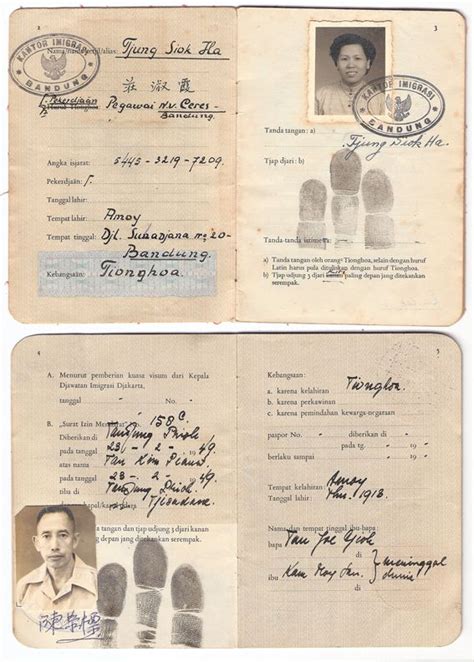 2
3
KANTOR IMIGRASI BANDUNG
Nama/nama ketjil/alias: Tjung Siok Ha
莊淑霞
Pekerdjaan Pegawai N.V. Ceres-
Bandung
Angka isjarat: 5445-3219-7209.
Pekerdjaan:
Tanggal lahir:
Tempat lahir: Amoy
Tempat tinggal: Djl. Subadjana no 20-
Bandung.
Kebangsaan: Tionghoa.
KANTOR IMIGRASI BANDUNG
Tanda tangan: a)
Tjung Siok Ha.
Tjap djari: b)
Tanda-tanda istimewa:
a) Tanda tangan oleh orang Tionghoa, selain dengan huruf
Latin harus pula dituliskan dengan huruf Tionghoa.
b) Tjap udjung 3 djari paling depan jang ditekankan
serempak.
4
5
A. Menurut pemberian kuasa visum dari Kepala
Djawatan Imigrasi Djakarta,
tanggal No.
B. "Surat Izin 150 C.
Diberikan di
tanggal 23 - 2 - 1949.
atas nama Tan
tanggal 23 - 2 - 1949
tiba di
dengan Tjisadane.
tangan dan tjap udjung 3 djari kanan
depan jang ditekankan serempak.
陳榮標
Kebangsaan:
a) karena kelahiran Tionghoa.
b) karena perkawinan
c) karena pemindahan kewarga-negaraan
paspor No. diberikan di
pada tg. 19
berlaku sampai 19
Tempat kelahiran Amoy
Tanggal lahir: Thn. 1913.
Nama dan tempat tinggal ibu-bapa:
bapa Tan Joe
di
ibu Kam Moy
meninggal
dunia
di